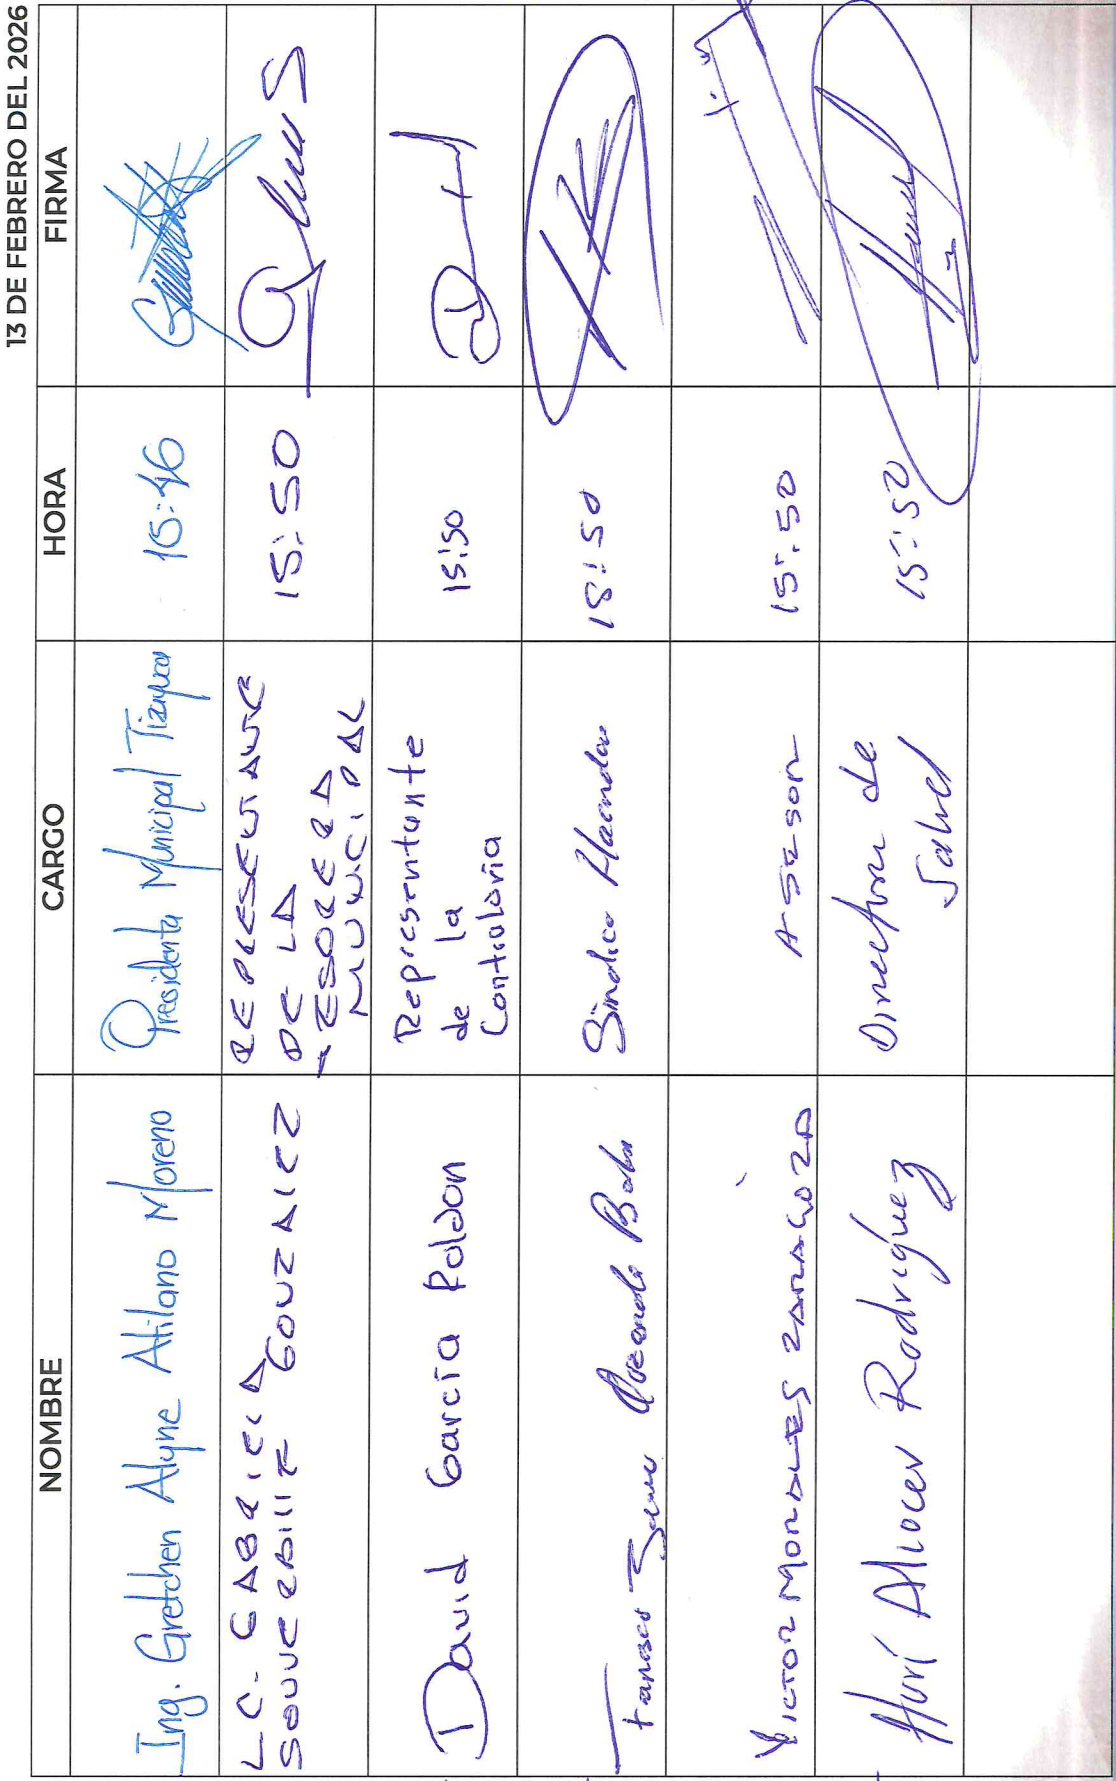 13 DE FEBRERO DEL 2026
NOMBRE CARGO HORA FIRMA
Ing. Gretchen Alyne Atilano Moreno Presidenta Municipal Tizayuca 15:46
L.C. GABRIELA SOUVERBILLE GONZALEZ REPRESENTANTE DE LA TESORERIA MUNICIPAL 15:50
David García Roldan Representante de la Contraloría 15:50
Francisco Javier Baños Sindico Hacendario 15:50
VICTOR MORALES ZARAGOZA ASESOR 15:50
Hurí Alvocer Rodríguez Directora de Salud 15:52